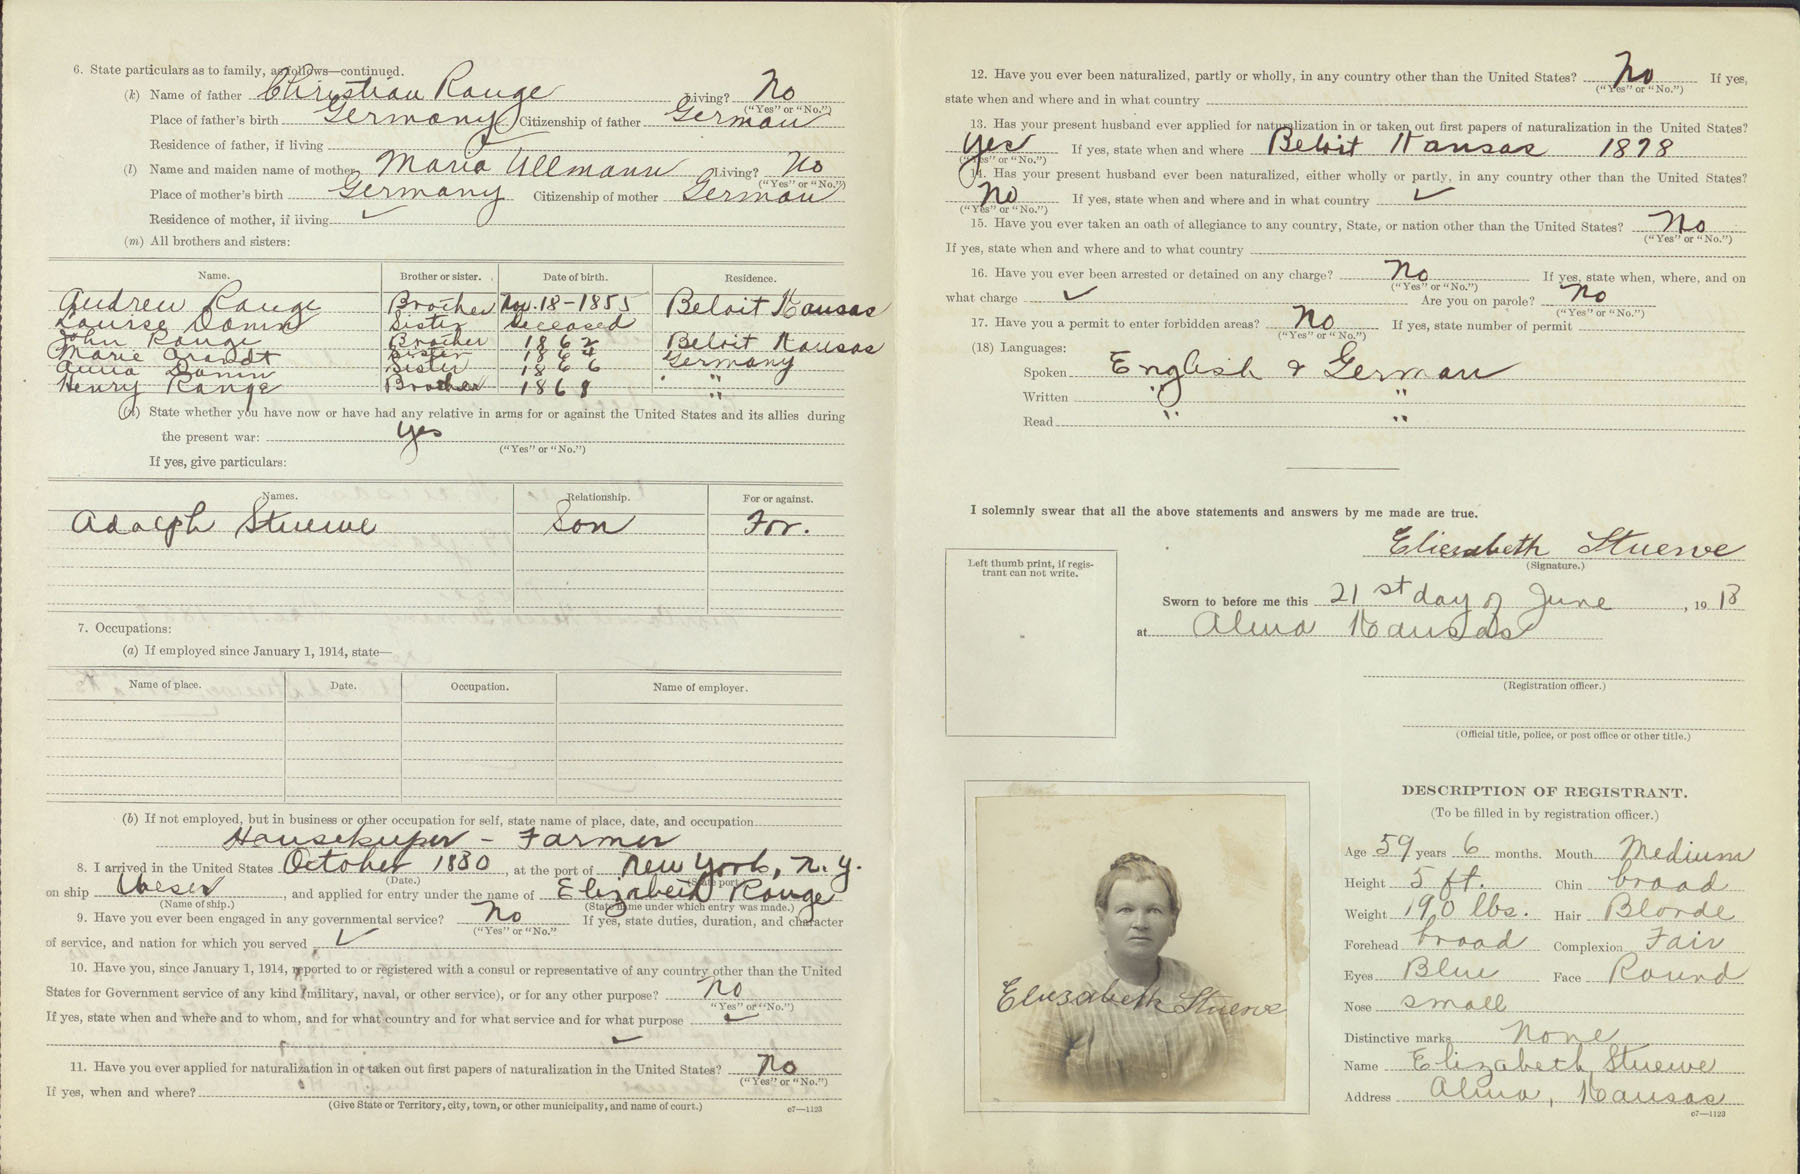 6. State particulars as to family, as follows—continued.
(k) Name of father Christian Range Living? No
("Yes" or "No.")
Place of father's birth Germany Citizenship of father German
Residence of father, if living
(l) Name and maiden name of mother Maria Ullmann Living? No
("Yes" or "No.")
Place of mother's birth Germany Citizenship of mother German
Residence of mother, if living ✓
(m) All brothers and sisters:
Name. Brother or sister. Date of birth. Residence.
Andrew Range Brother Nov. 18-1855 Beloit Kansas
Louise Damm Sister Deceased
John Range Brother 1862 Beloit Kansas
Marie Arandt Sister 1864 Germany
Anna Damm Sister 1866 "
Henry Range Brother 1868 "
(n) State whether you have now or have had any relative in arms for or against the United States and its allies during
the present war: Yes
("Yes" or "No.")
If yes, give particulars:
Names. Relationship. For or against.
Adolph Stuewe Son For.
7. Occupations:
(a) If employed since January 1, 1914, state—
Name of place. Date. Occupation. Name of employer.
(b) If not employed, but in business or other occupation for self, state name of place, date, and occupation
Housekeeper - Farmer
8. I arrived in the United States October 1880, at the port of New York, N.Y.
(Date.) (State port.)
on ship Weser, and applied for entry under the name of Elizabeth Range
(Name of ship.) (State name under which entry was made.)
9. Have you ever been engaged in any governmental service? No If yes, state duties, duration, and character
("Yes" or "No."
of service, and nation for which you served ✓
10. Have you, since January 1, 1914, reported to or registered with a consul or representative of any country other than the United
States for Government service of any kind (military, naval, or other service), or for any other purpose? No
("Yes" or "No.")
If yes, state when and where and to whom, and for what country and for what service and for what purpose ✓
✓
11. Have you ever applied for naturalization in or taken out first papers of naturalization in the United States? No
("Yes" or "No.")
If yes, when and where?
(Give State or Territory, city, town, or other municipality, and name of court.)
c7—1123
12. Have you ever been naturalized, partly or wholly, in any country other than the United States? No If yes,
("Yes" or "No.")
state when and where and in what country
13. Has your present husband ever applied for naturalization in or taken out first papers of naturalization in the United States?
Yes If yes, state when and where Beloit Kansas 1878
("Yes" or "No.")
14. Has your present husband ever been naturalized, either wholly or partly, in any country other than the United States?
No If yes, state when and where and in what country ✓
("Yes" or "No.")
15. Have you ever taken an oath of allegiance to any country, State, or nation other than the United States? No
("Yes" or "No.")
If yes, state when and where and to what country
16. Have you ever been arrested or detained on any charge? No If yes, state when, where, and on
("Yes" or "No.")
what charge ✓ Are you on parole? No
("Yes" or "No.")
17. Have you a permit to enter forbidden areas? No If yes, state number of permit
("Yes" or "No.")
(18) Languages:
Spoken English & German
Written " "
Read " "
I solemnly swear that all the above statements and answers by me made are true.
Eliesabeth Stuewe
(Signature.)
Left thumb print, if regis-
trant can not write.
Sworn to before me this 21st day of June, 1918
at Alma Kansas
(Registration officer.)
(Official title, police, or post office or other title.)
DESCRIPTION OF REGISTRANT.
(To be filled in by registration officer.)
Age 59 years 6 months. Mouth Medium
Height 5 ft. Chin broad
Weight 190 lbs. Hair Blonde
Forehead broad Complexion Fair
Eyes Blue Face Round
Nose small
Distinctive marks None
Name Elizabeth Stuewe
Address Alma, Kansas
c7—1123
Eliesabeth Stuewe